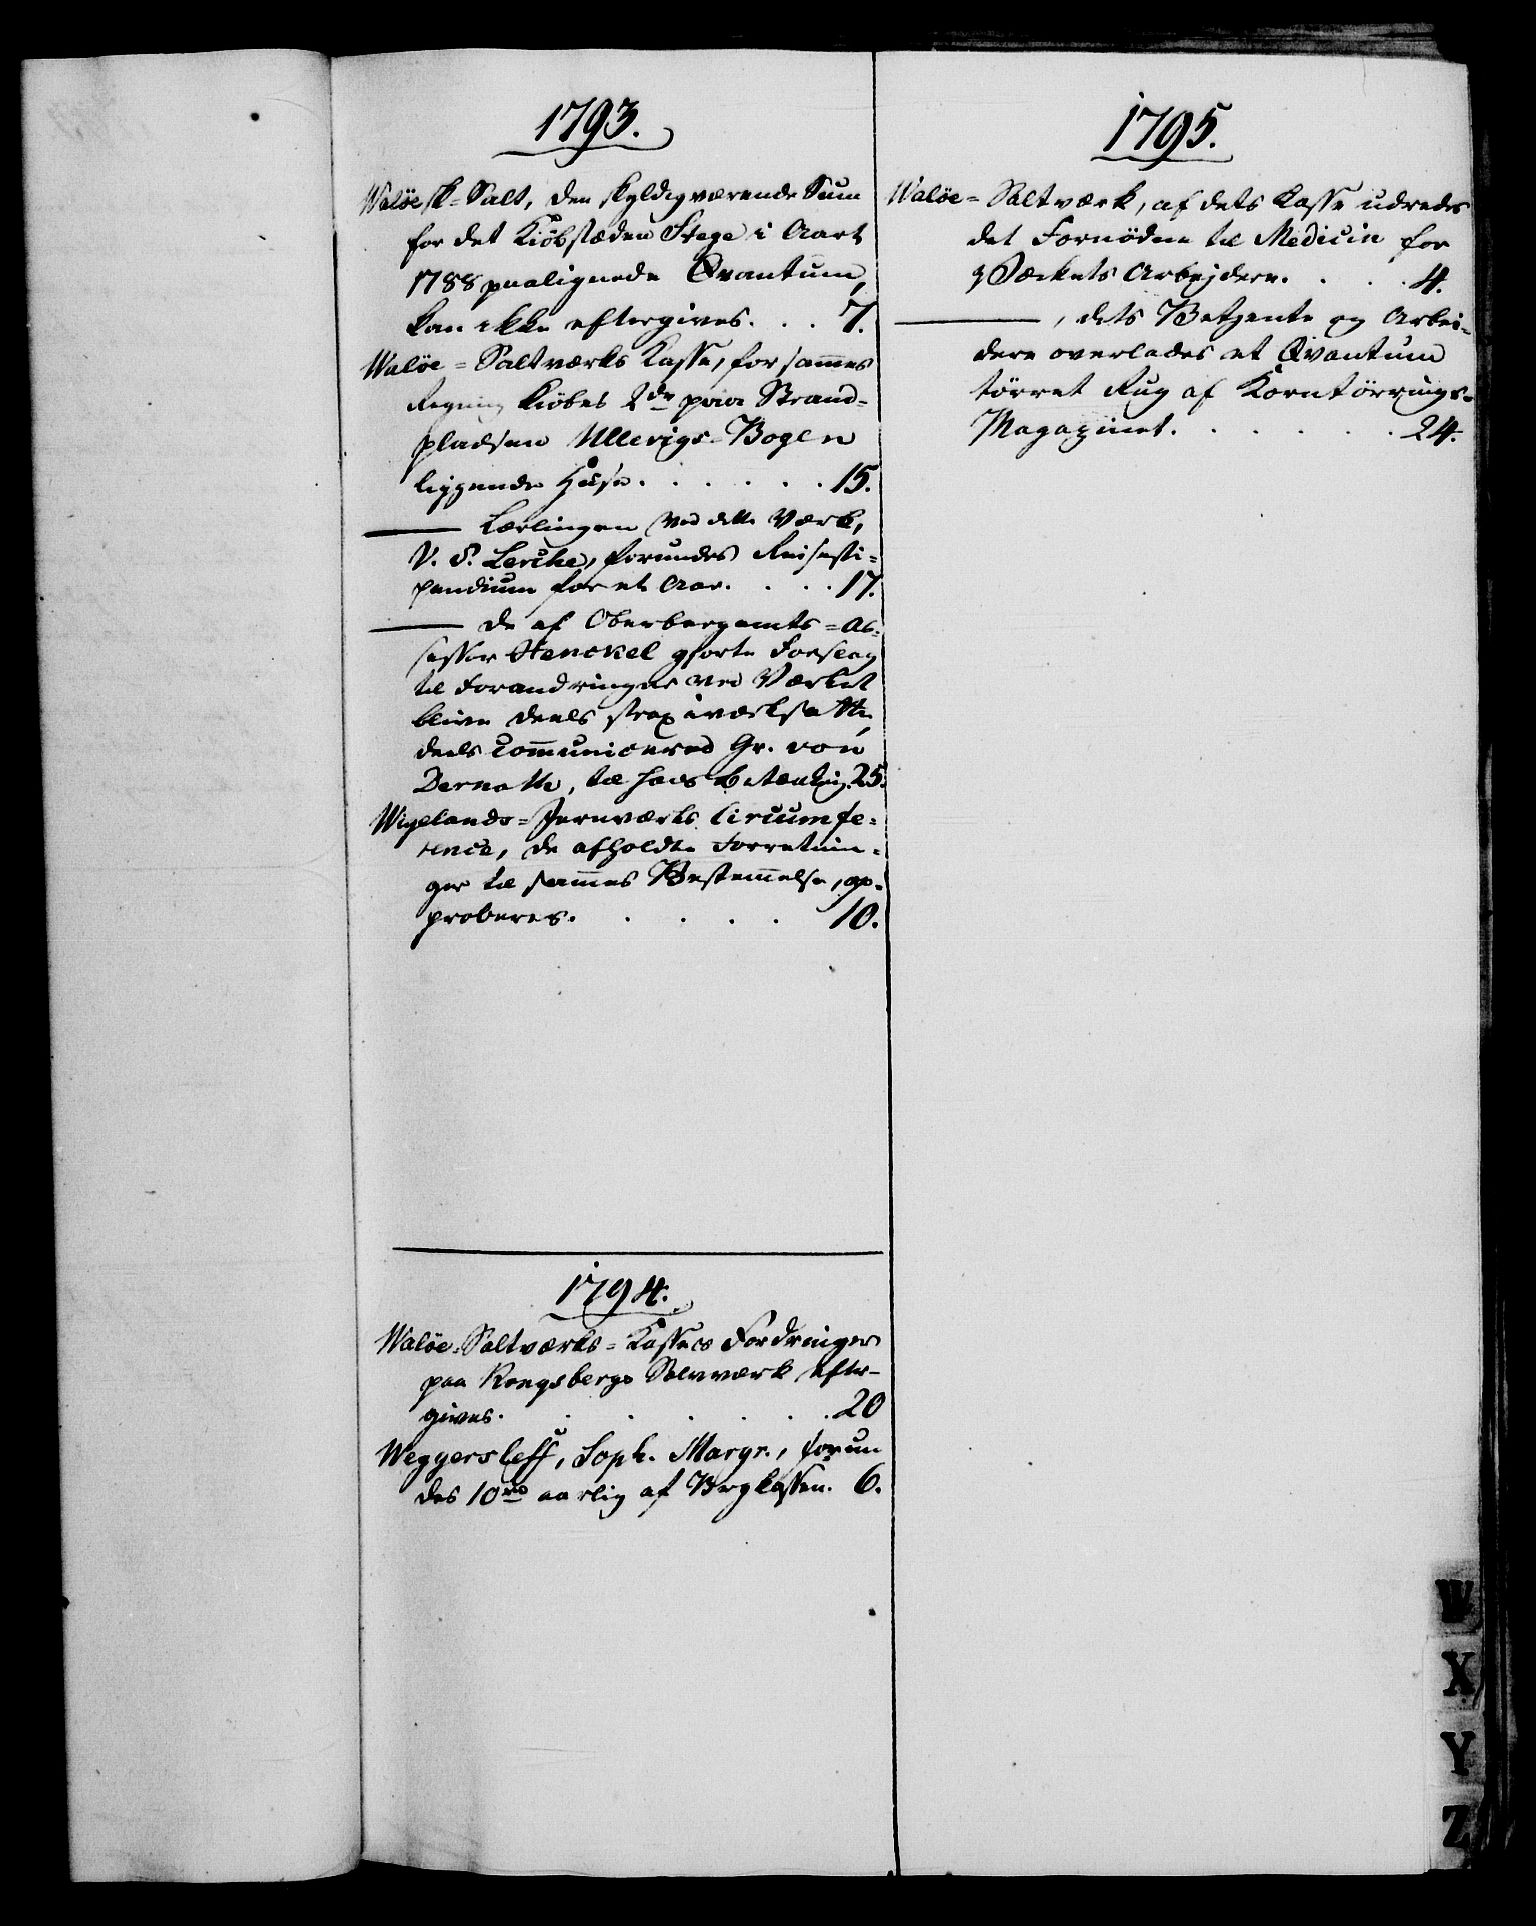 1793.
Waløe sk=Salt, den skyldigværende Sum
for det Kiøbstæden Stege i Aaret
1788 paalignede Qvantum,
kan ikke eftergives. . . 7.
Waløe=Saltværks Kasse, for sammes
Regning kiøbes 2de paa Strand=
pladsen Ullevigs=Bogen
liggende Huse. . . . . . 15.
——— Lærlingen ved dette Værk,
P. Lerche, forundes Reisesti=
pendium for et Aar. . . . 17.
——— de af Oberbergamts=As=
sessor Henckel giorte Forslag
til Forandringer ved Værket
blive deels strax iværksatte,
deels communicered Gr. von
Dernath, til hans Betænkng. 25.
Wigelands=Jernværks Circumfe=
rence, de afholdte Forretnin=
ger til sammes Bestemmelse, ap=
proberes. . . . . . 10.
1794.
Waløe=Saltværks=Kasses Fordringer
paa Kongsbergs Sølvværk efter=
gives. . . . . . . 20
Weggersleff, Soph. Margr., forun
des 10 rd aarlig af Bergkassen. 6.
1795.
Waløe=Saltværk, af dets Kasse udredes
det Fornødne til Medicin for
Værkets Arbejdere. . . . 4.
———, dets Betjente og Arbei=
dere overlades et Qvantum
tørret Rug af Korntørrings=
Magazinet. . . . . . 24.
W
X
Y
Z